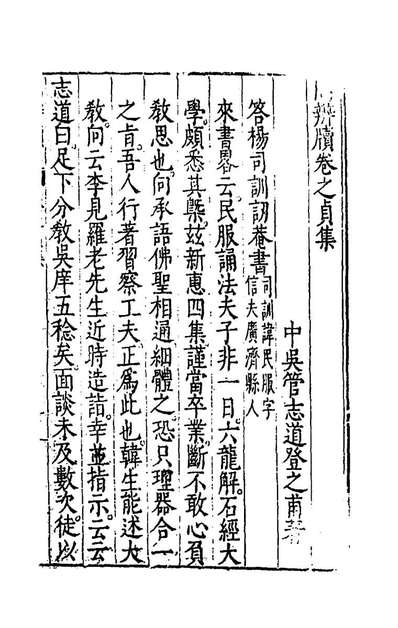 辨牘卷之貞集
中吳管志道登之甫著
答楊司訓訒菴書司訓諱民服字
信夫廣濟縣人
來書畧云民服誦法夫子非一日六龍解石經大
學頗悉其槩兹新惠四集謹當卒業斷不敢心負
敎思也何承語佛聖相通細體之恐只理器合一
之肯吾人行著習察工夫正爲此也韓生能述大
敎向云李見羅老先生近時造詣幸並指示云云
志道曰足下分敎吳庠五稔矣面談未及數次徒以